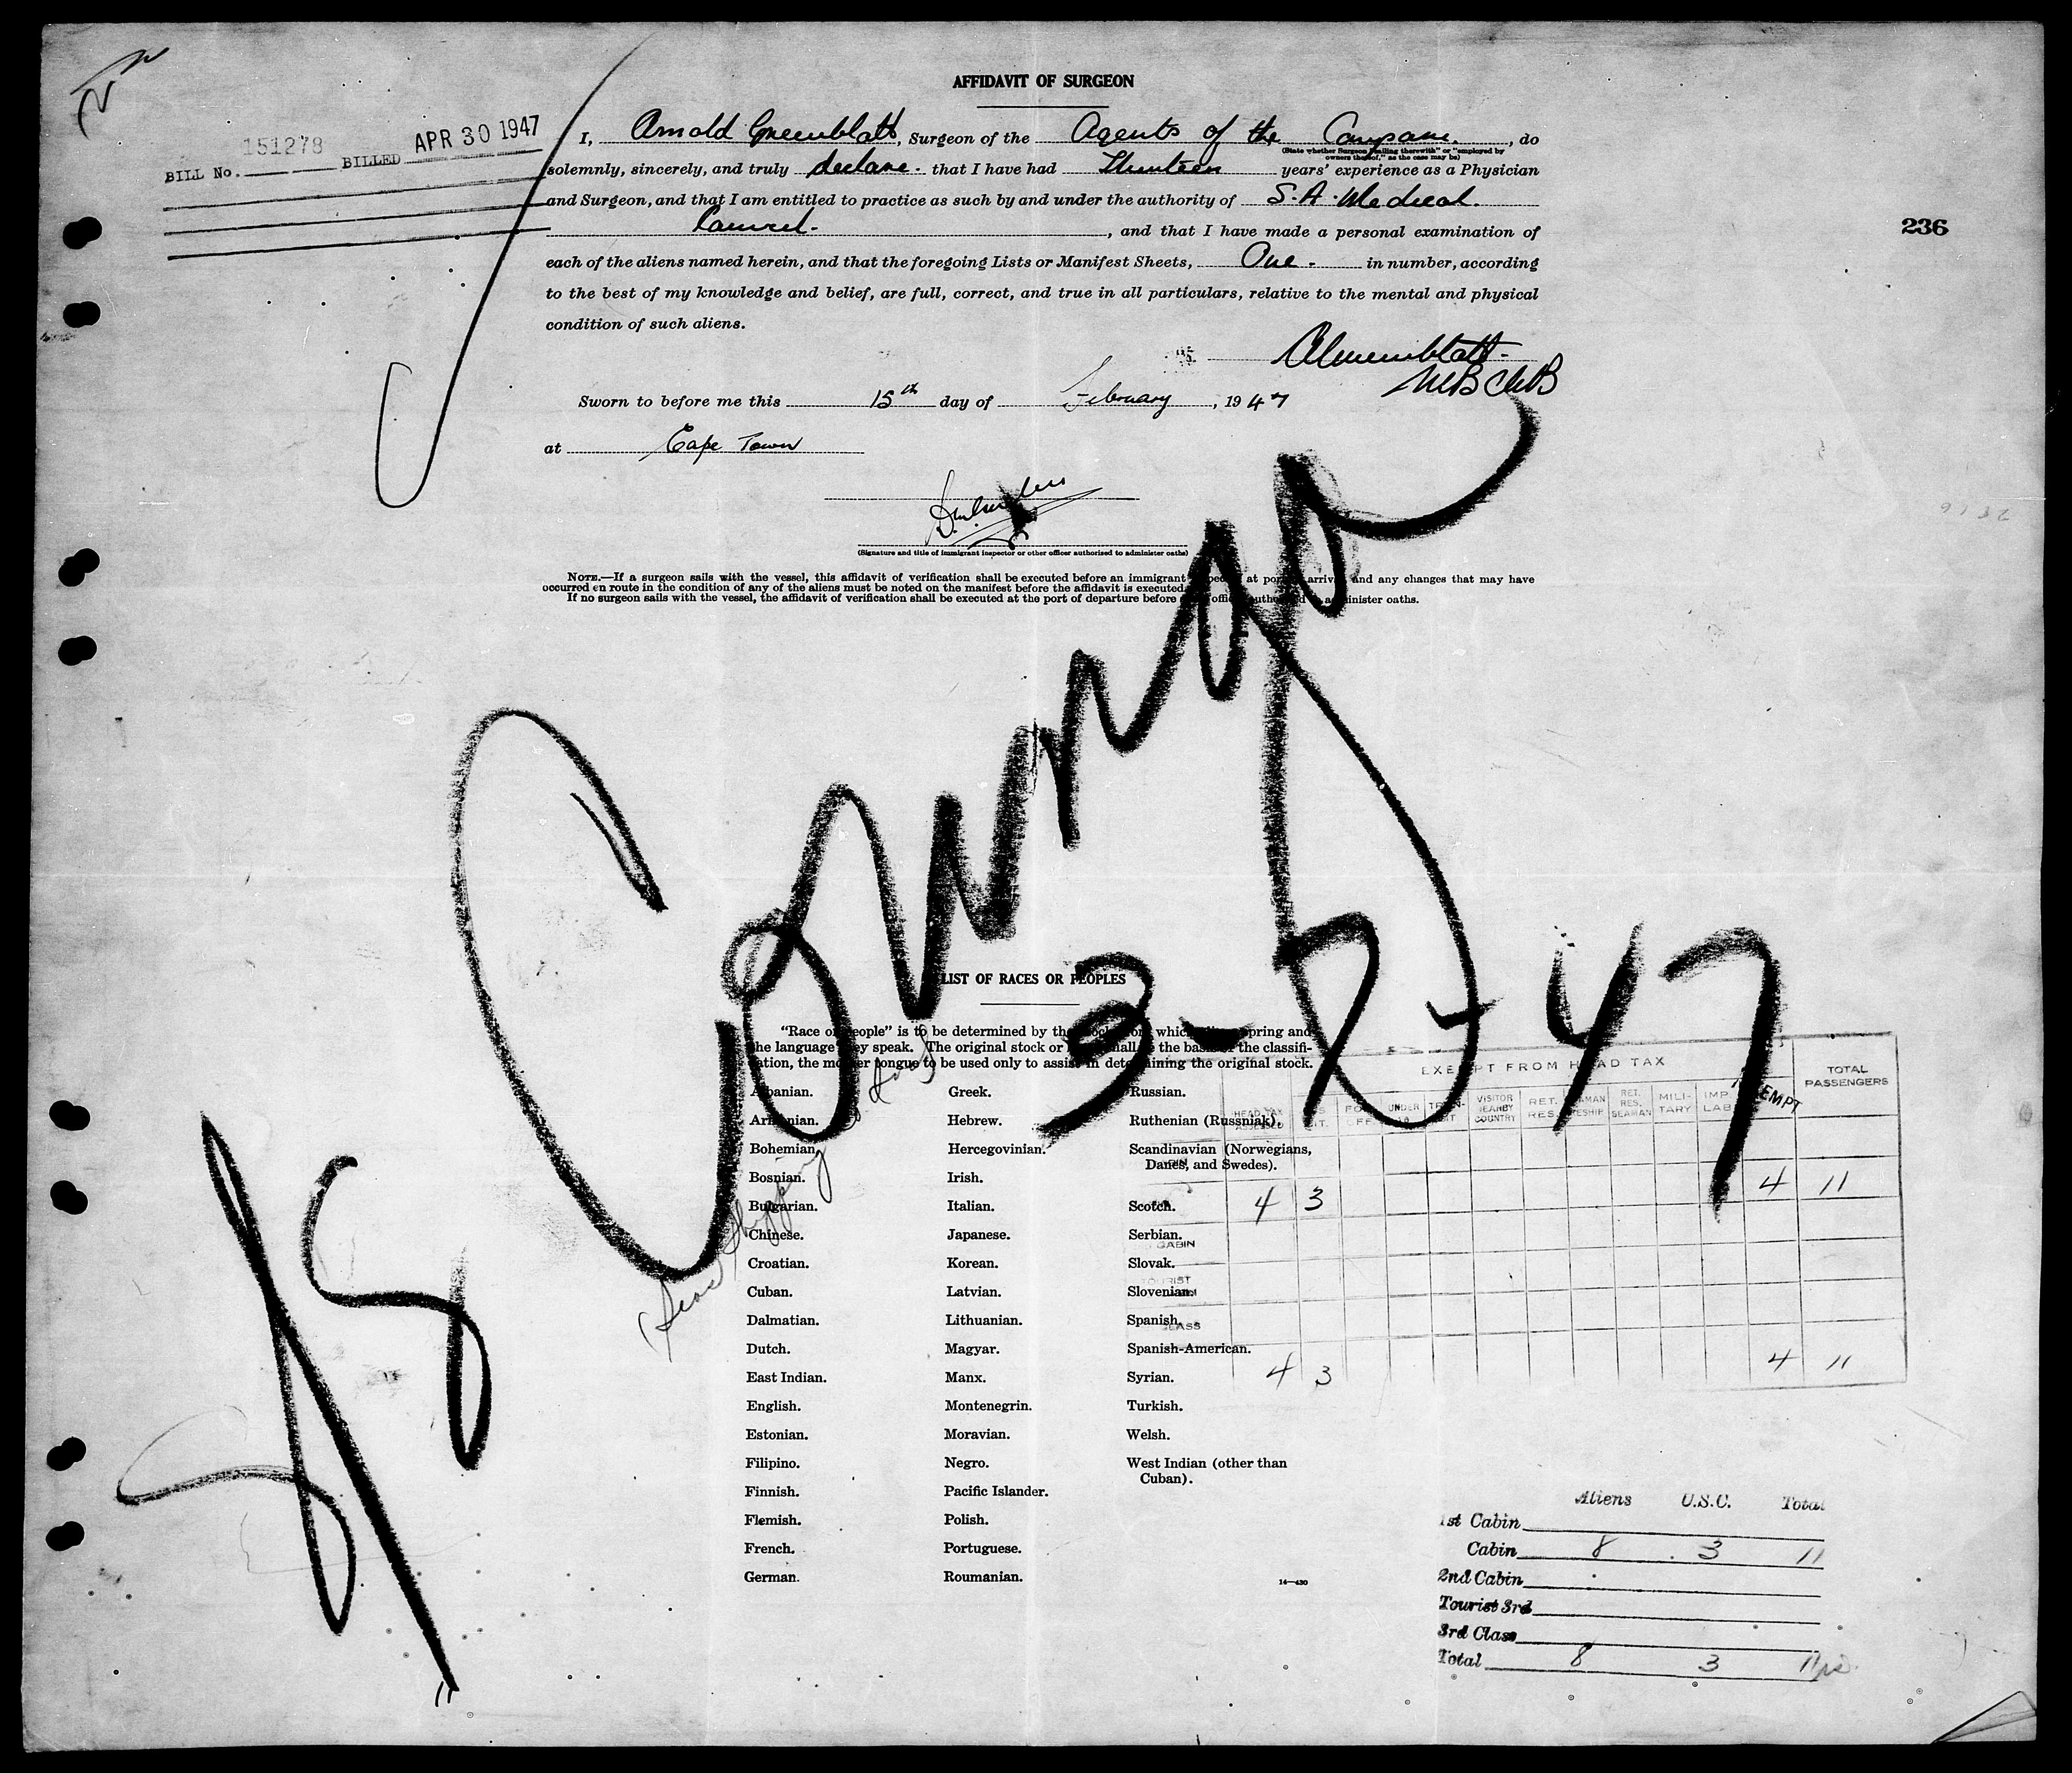 AFFIDAVIT OF SURGEON
BILL No. 151278 BILLED APR 30 1947
I, Arnold Greenblatt, Surgeon of the Agents of the Company, do
(State whether Surgeon sailing therewith" or "employed by
owners thereof," as the case may be)
solemnly, sincerely, and truly declare. that I have had Thirteen years' experience as a Physician
and Surgeon, and that I am entitled to practice as such by and under the authority of S.A. Medical.
Council., and that I have made a personal examination of
each of the aliens named herein, and that the foregoing Lists or Manifest Sheets, One. in number, according
to the best of my knowledge and belief, are full, correct, and true in all particulars, relative to the mental and physical
condition of such aliens.
236
AGreenblatt.
MB ChB
Sworn to before me this 15th day of February, 1947
at Cape Town
(Signature and title of immigrant inspector or other officer authorised to administer oaths)
NOTE.—If a surgeon sails with the vessel, this affidavit of verification shall be executed before an immigrant inspector at port of arrival and any changes that may have
occurred en route in the condition of any of the aliens must be noted on the manifest before the affidavit is executed.
If no surgeon sails with the vessel, the affidavit of verification shall be executed at the port of departure before an officer authorized to administer oaths.
3-7-47
LIST OF RACES OR PEOPLES
"Race or people" is to be determined by the stock from which aliens spring and
the language they speak. The original stock or blood shall be the basis of the classifi-
cation, the mother tongue to be used only to assist in determining the original stock.
Albanian.
Armenian.
Bohemian.
Bosnian.
Bulgarian.
Chinese.
Croatian.
Cuban.
Dalmatian.
Dutch.
East Indian.
English.
Estonian.
Filipino.
Finnish.
Flemish.
French.
German.
Greek.
Hebrew.
Hercegovinian.
Irish.
Italian.
Japanese.
Korean.
Latvian.
Lithuanian.
Magyar.
Manx.
Montenegrin.
Moravian.
Negro.
Pacific Islander.
Polish.
Portuguese.
Roumanian.
Russian.
Ruthenian (Russniak).
Scandinavian (Norwegians,
Danes, and Swedes).
Scotch.
Serbian.
Slovak.
Slovenian.
Spanish.
Spanish-American.
Syrian.
Turkish.
Welsh.
West Indian (other than
Cuban).
14—430
EXEMPT FROM HEAD TAX
HEAD TAX ASSESSED UNDER VISITOR NEARBY COUNTRY RET. RES. RET. RES. SEAMAN MILITARY TOTAL PASSENGERS
4 3 4 11
CABIN
TOURIST
CLASS
4 3 4 11
Aliens U.S.C. Total
1st Cabin
Cabin 8 3 11
2nd Cabin
Tourist 3rd
3rd Class
Total 8 3 11